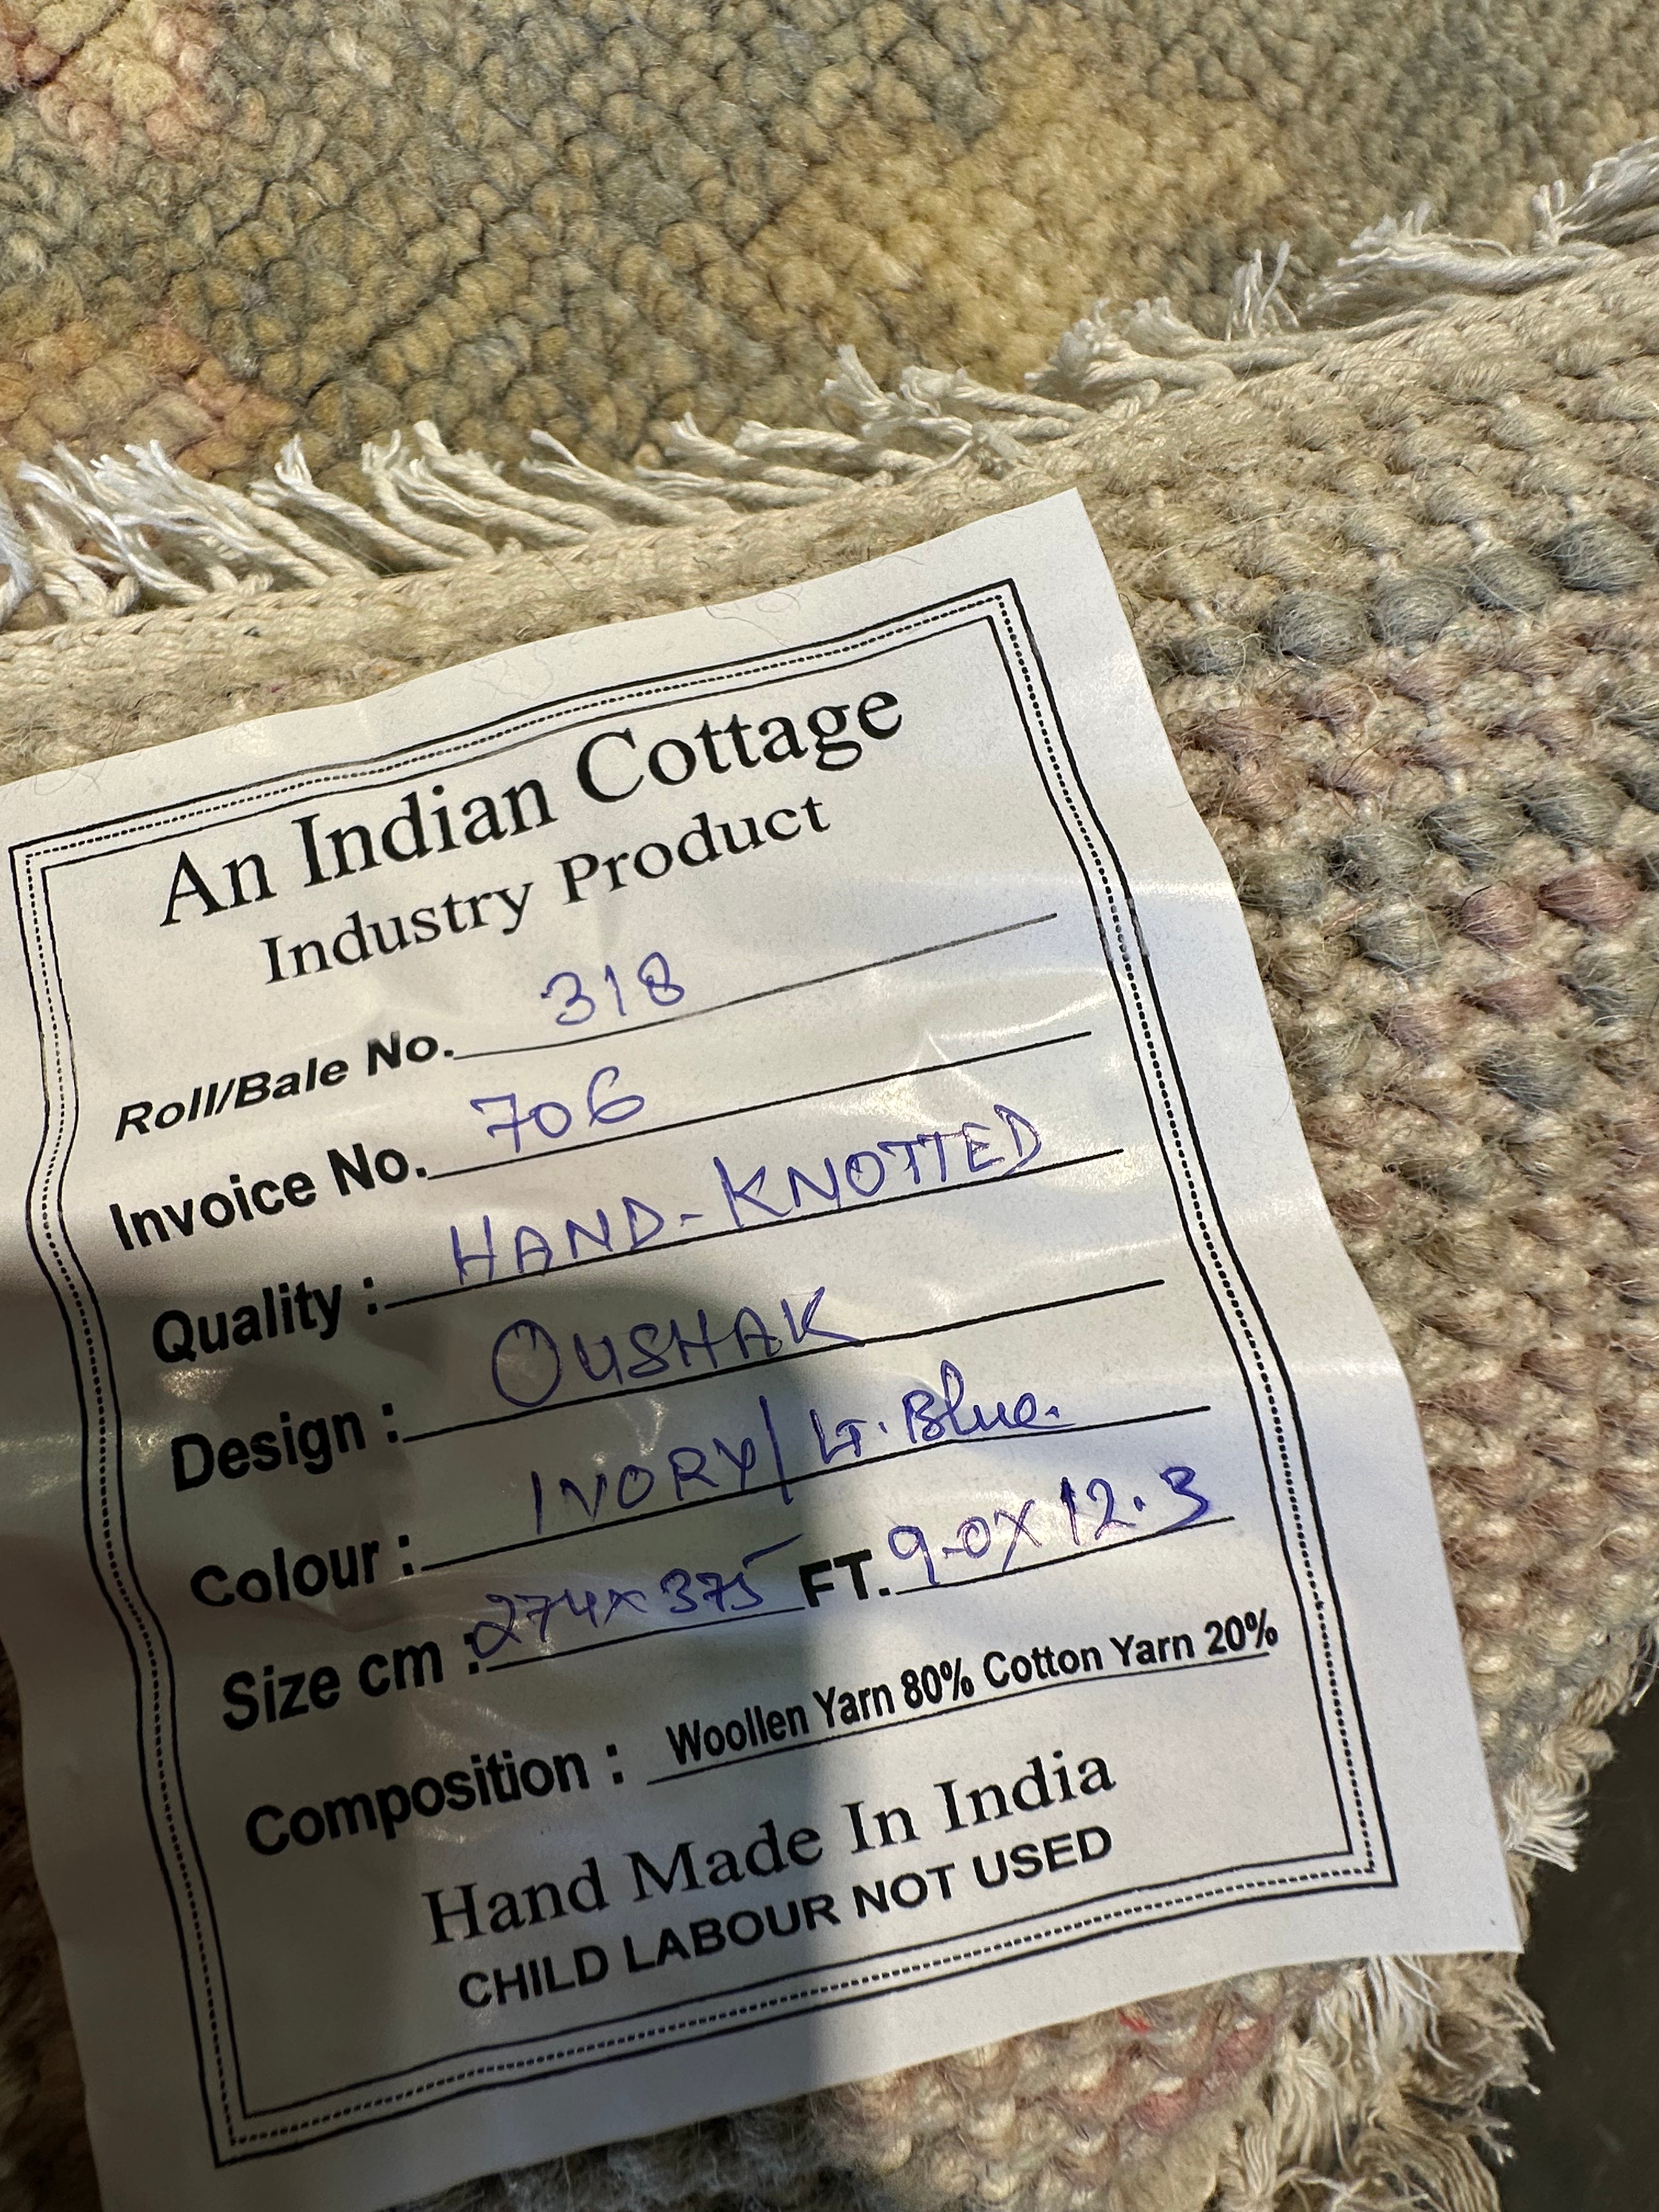 An Indian Cottage
Industry Product
Roll/Bale No. 318
Invoice No. 706
Quality : HAND-KNOTTED
Design : OUSHAK
Colour : IVORY/LT. Blue.
Size cm : 274x375 FT. 9.0X12.3
Composition : Woollen Yarn 80% Cotton Yarn 20%
Hand Made In India
CHILD LABOUR NOT USED